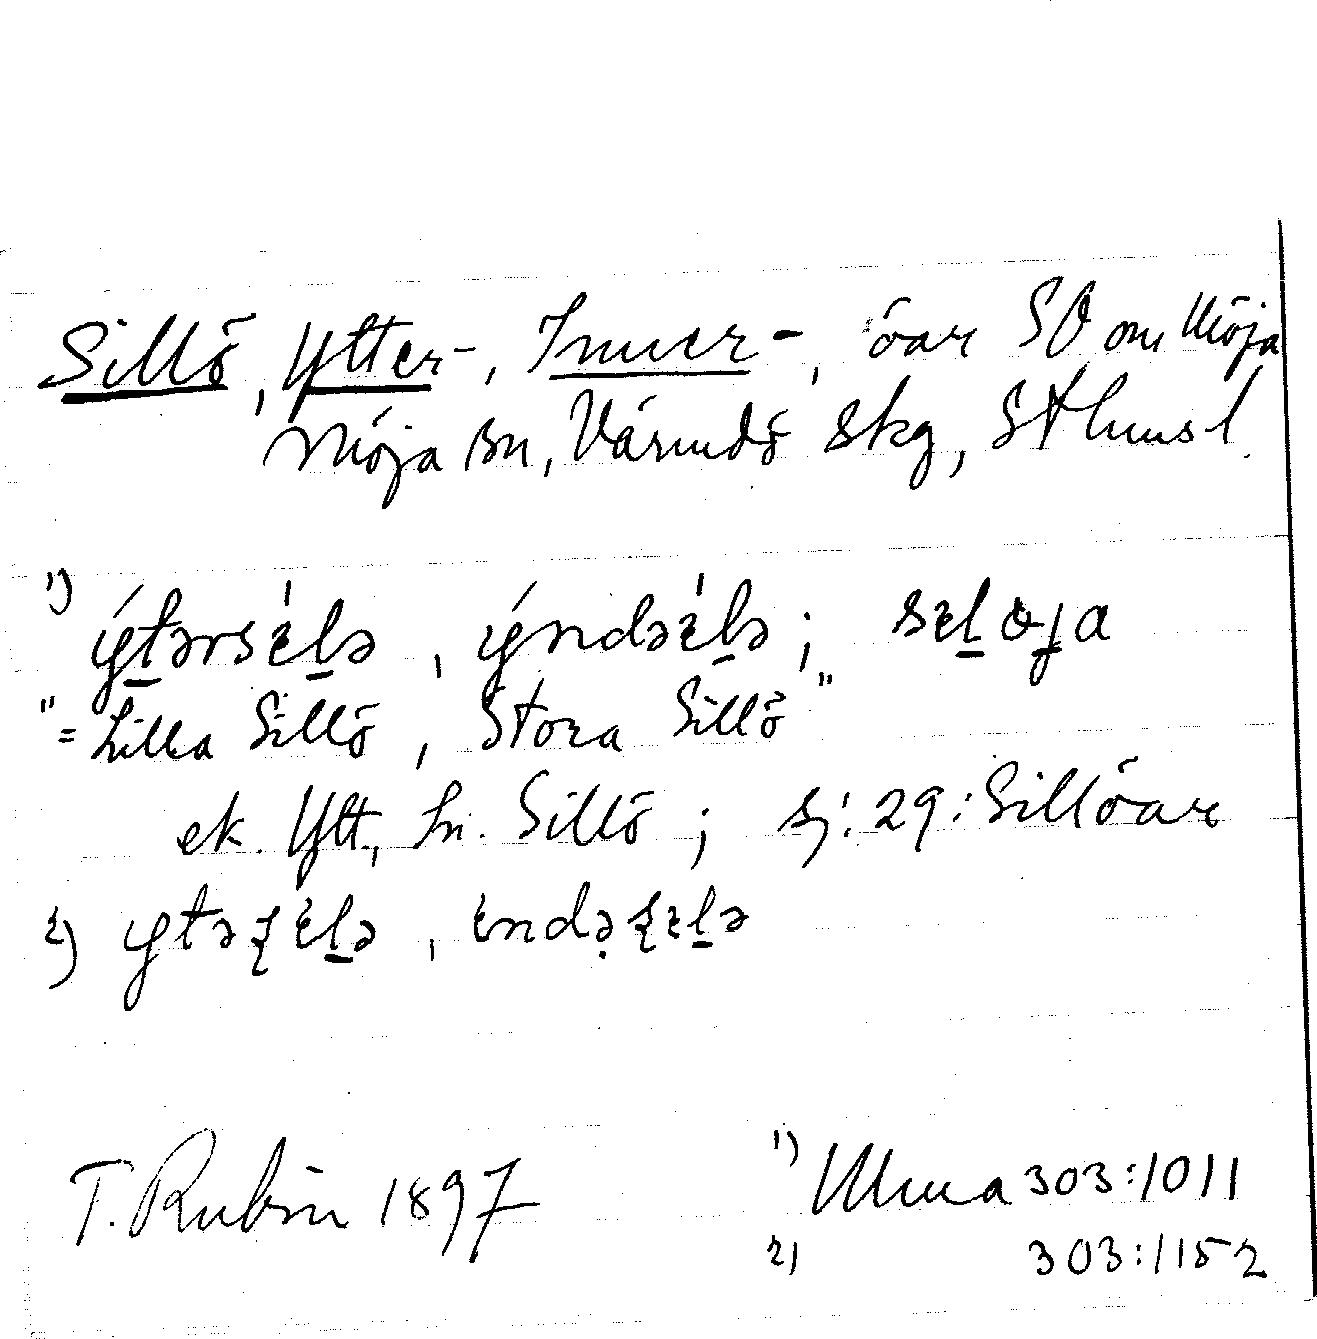 Sillö, Ytter-, Inner-, öar SO om Möja
Möja sn, Värmdö skg, Sthms l.
1) ýt̲ərsél̲ə, ýndəél̲ə; sɛl̲øja
"=Lilla Sillö, Stora Sillö"
ek. Ytt., In. Sillö; sj: 29: Sillöar
2)
T. Rubin 1897
1) Ulma 303:1011
2) 303:1152